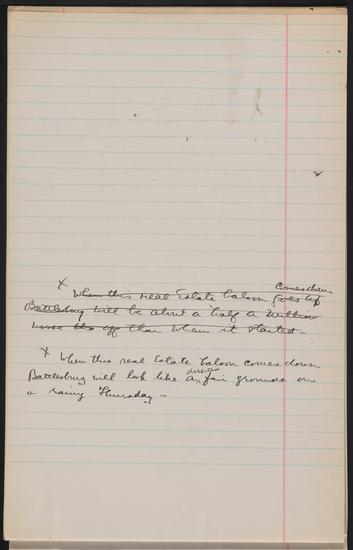 comes down
x When this real Estate baloon goes up
Battlesburg will be about a half a Million
worse off than when it started -
x When this real Estate baloon comes down
Battlesburg will look like a fair grounds on
a rainy Thursday -